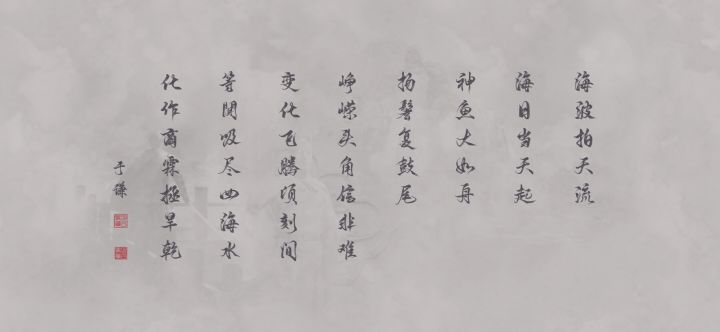 海波拍天流
海日当天起
神魚大如舟
扬鬐复鼓尾
峥嵘头角信非难
变化飞腾顷刻间
等闲吸尽四海水
化作商霖拯旱乾
于谦